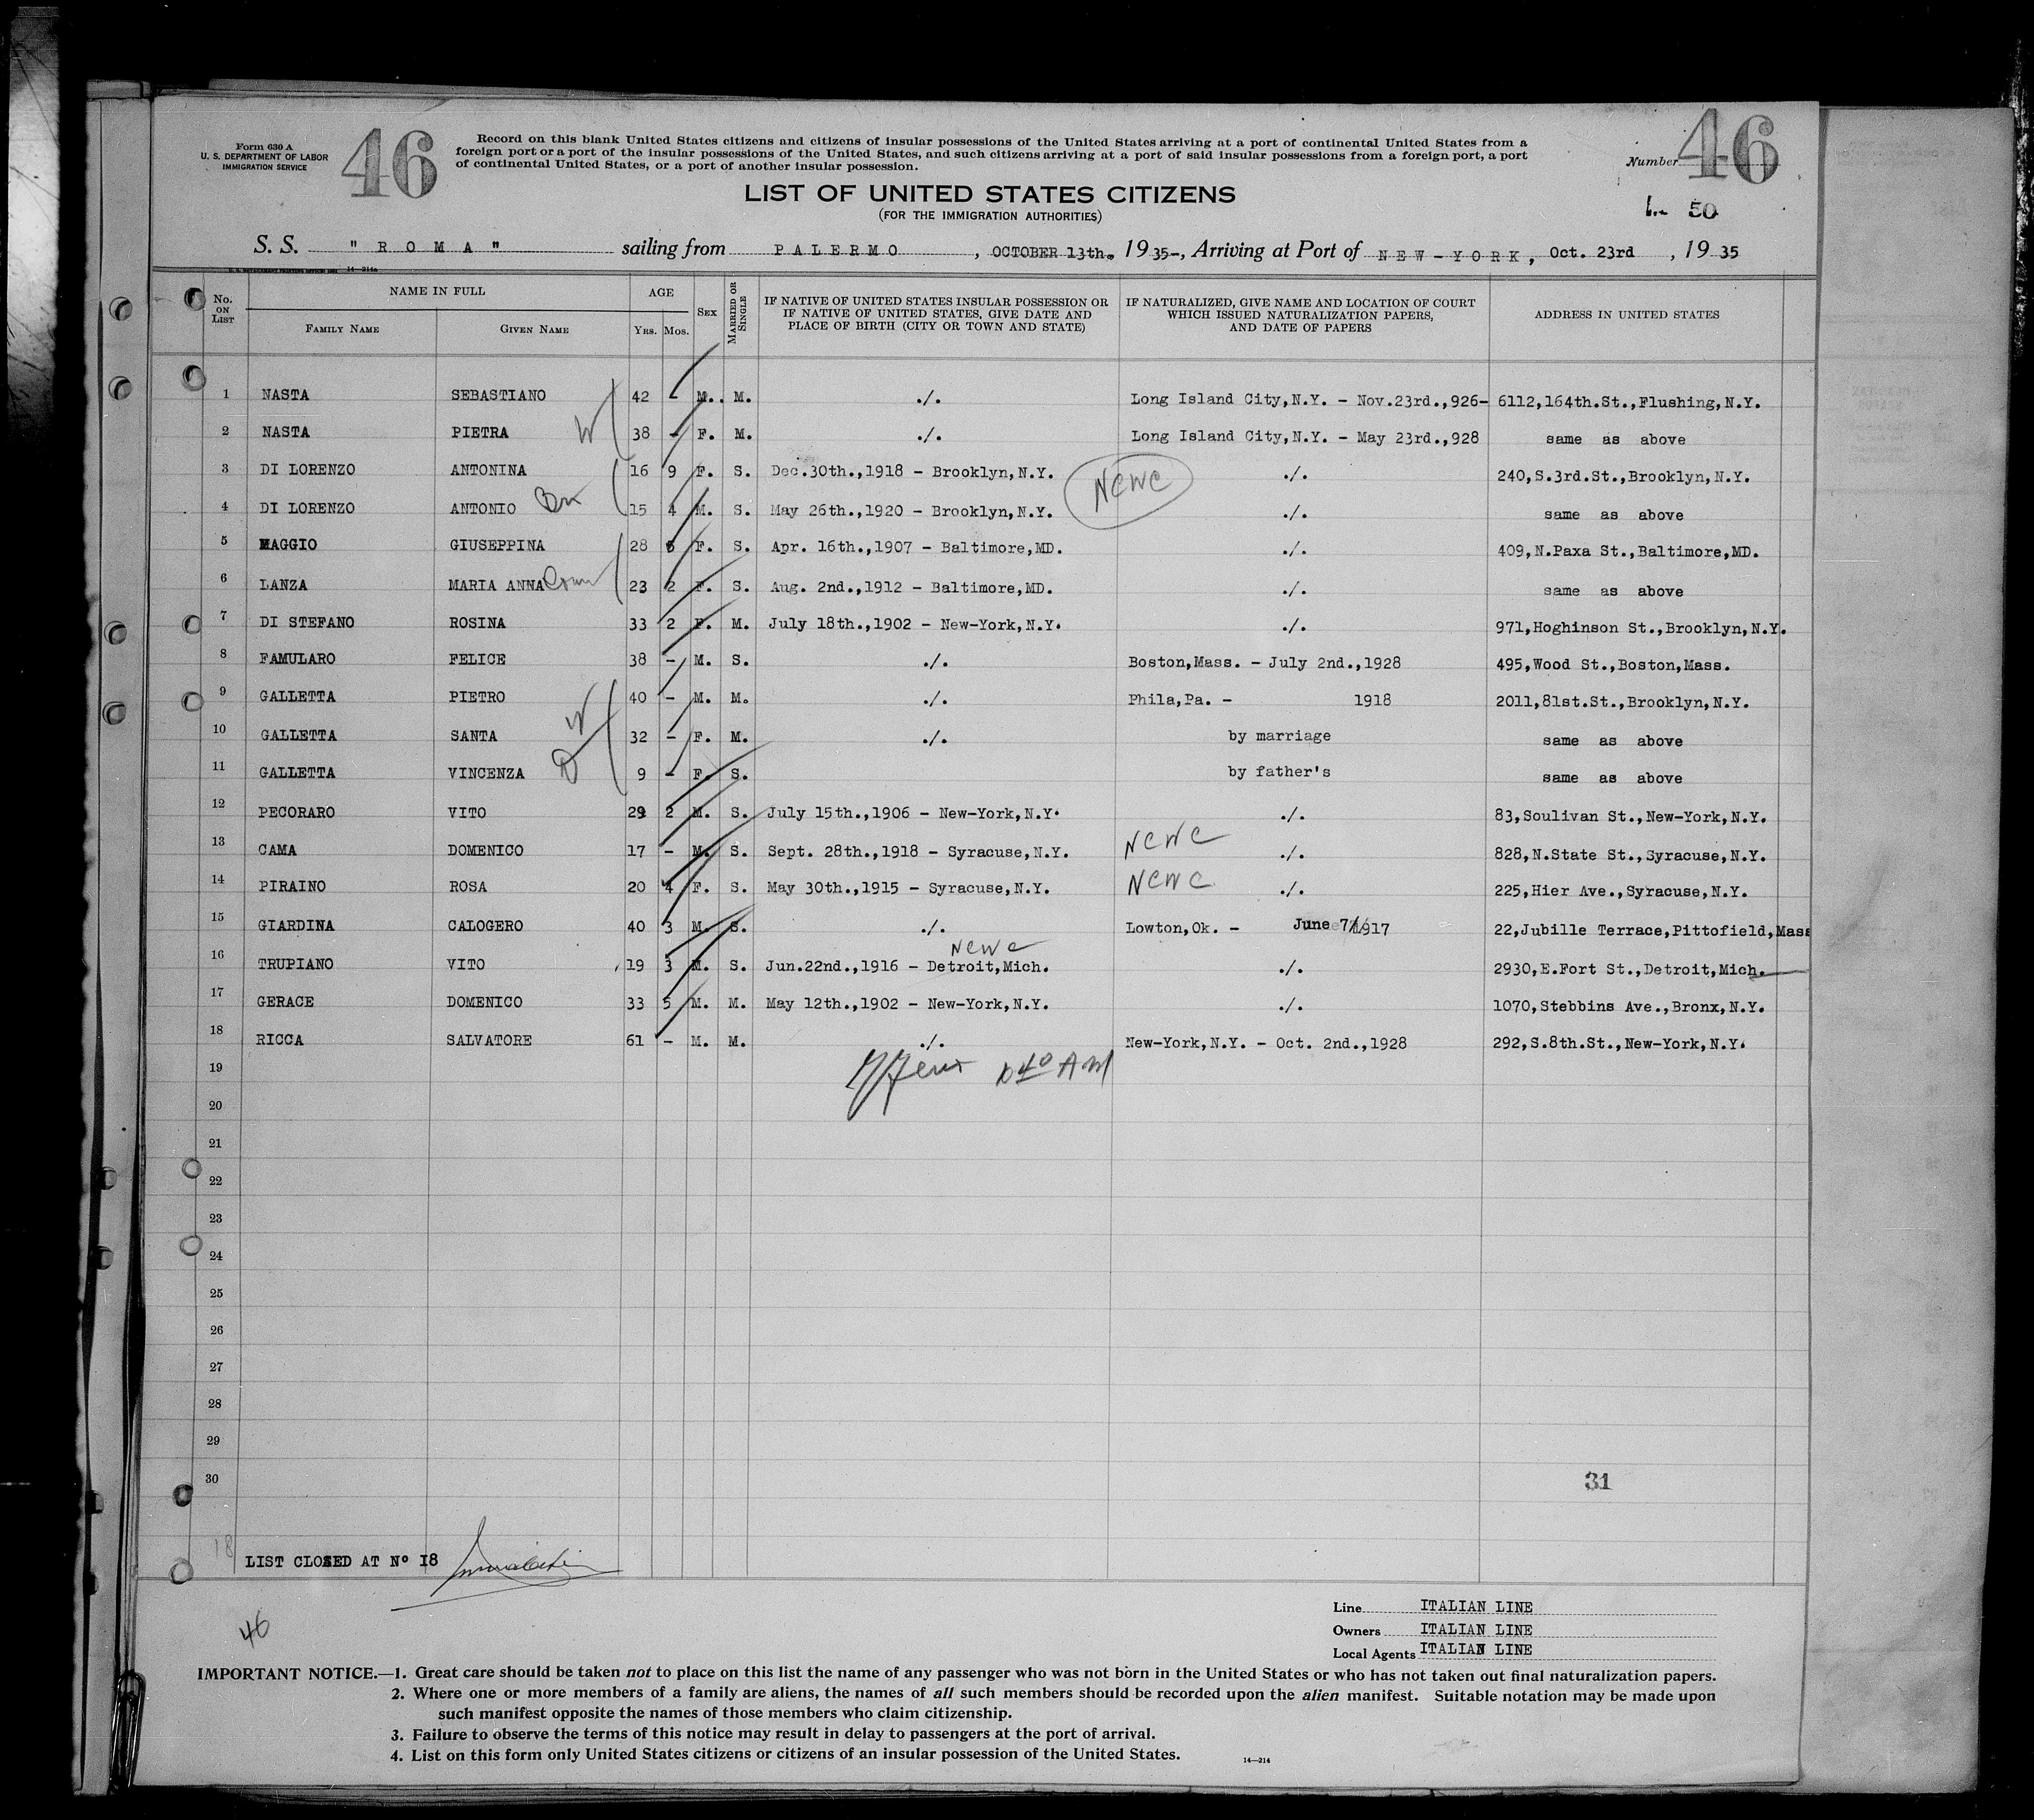 Form 630 A
U. S. DEPARTMENT OF LABOR
IMMIGRATION SERVICE
46
Record on this blank United States citizens and citizens of insular possessions of the United States arriving at a port of continental United States from a
foreign port or a port of the insular possessions of the United States, and such citizens arriving at a port of said insular possessions from a foreign port, a port
of continental United States, or a port of another insular possession.
Number 46
LIST OF UNITED STATES CITIZENS
(FOR THE IMMIGRATION AUTHORITIES)
50
S. S. " R O M A " sailing from P A L E R M O , OCTOBER 13th. 1935-, Arriving at Port of N E W - Y O R K , Oct. 23rd , 1935
14—214a
No. ON LIST
NAME IN FULL
FAMILY NAME
GIVEN NAME
AGE
YRS. MOS.
SEX
MARRIED OR SINGLE
IF NATIVE OF UNITED STATES INSULAR POSSESSION OR
IF NATIVE OF UNITED STATES, GIVE DATE AND
PLACE OF BIRTH (CITY OR TOWN AND STATE)
IF NATURALIZED, GIVE NAME AND LOCATION OF COURT
WHICH ISSUED NATURALIZATION PAPERS,
AND DATE OF PAPERS
ADDRESS IN UNITED STATES
1 NASTA SEBASTIANO 42 - M. M. ./. Long Island City,N.Y. - Nov.23rd.,926- 6112,164th.St.,Flushing,N.Y.
2 NASTA PIETRA W 38 - F. M. ./. Long Island City,N.Y. - May 23rd.,928 same as above
3 DI LORENZO ANTONINA 16 9 F. S. Dec.30th.,1918 - Brooklyn,N.Y. NCWC ./. 240,S.3rd.St.,Brooklyn,N.Y.
4 DI LORENZO ANTONIO 15 4 M. S. May 26th.,1920 - Brooklyn,N.Y. ./. same as above
5 MAGGIO GIUSEPPINA 28 6 F. S. Apr. 16th.,1907 - Baltimore,MD. ./. 409,N.Paxa St.,Baltimore,MD.
6 LANZA MARIA ANNA 23 2 F. S. Aug. 2nd.,1912 - Baltimore,MD. ./. same as above
7 DI STEFANO ROSINA 33 2 F. M. July 18th.,1902 - New-York,N.Y. ./. 971,Hoghinson St.,Brooklyn,N.Y.
8 FAMULARO FELICE 38 - M. S. ./. Boston,Mass. - July 2nd.,1928 495,Wood St.,Boston,Mass.
9 GALLETTA PIETRO 40 - M. M. ./. Phila,Pa. - 1918 2011,81st.St.,Brooklyn,N.Y.
10 GALLETTA SANTA W 32 - F. M. ./. by marriage same as above
11 GALLETTA VINCENZA D 9 - F. S. by father's same as above
12 PECORARO VITO 29 2 M. S. July 15th.,1906 - New-York,N.Y. ./. 83,Soulivan St.,New-York,N.Y.
13 CAMA DOMENICO 17 - M. S. Sept. 28th.,1918 - Syracuse,N.Y. NCWC ./. 828,N.State St.,Syracuse,N.Y.
14 PIRAINO ROSA 20 4 F. S. May 30th.,1915 - Syracuse,N.Y. NCWC ./. 225,Hier Ave.,Syracuse,N.Y.
15 GIARDINA CALOGERO 40 3 M. S. ./. Lowton,Ok. - June 7/1917 22,Jubille Terrace,Pittofield,Mass
NCWC
16 TRUPIANO VITO 19 3 M. S. Jun.22nd.,1916 - Detroit,Mich. ./. 2930,E.Fort St.,Detroit,Mich.
17 GERACE DOMENICO 33 5 M. M. May 12th.,1902 - New-York,N.Y. ./. 1070,Stebbins Ave.,Bronx,N.Y.
18 RICCA SALVATORE 61 - M. M. ./. New-York,N.Y. - Oct. 2nd.,1928 292,S.8th.St.,New-York,N.Y.
19
20
21
22
23
24
25
26
27
28
29
30
31
18 LIST CLOSED AT Nº 18
46
Line ITALIAN LINE
Owners ITALIAN LINE
Local Agents ITALIAN LINE
IMPORTANT NOTICE.—1. Great care should be taken not to place on this list the name of any passenger who was not born in the United States or who has not taken out final naturalization papers.
2. Where one or more members of a family are aliens, the names of all such members should be recorded upon the alien manifest. Suitable notation may be made upon
such manifest opposite the names of those members who claim citizenship.
3. Failure to observe the terms of this notice may result in delay to passengers at the port of arrival.
4. List on this form only United States citizens or citizens of an insular possession of the United States.
14—214